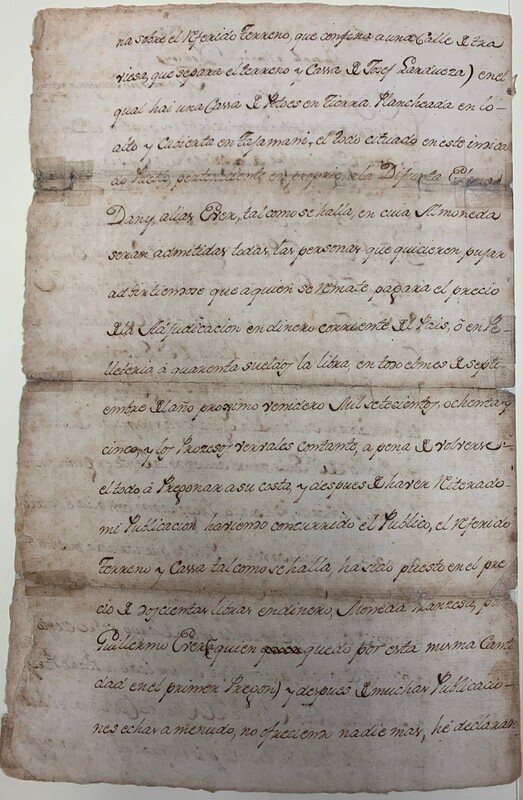 na sobre el Referido Terreno, que confina a una Calle de tra
viesa, que separa el terreno y Cassa de Josef Lardueza) en el
qual hai una Cassa de Postes en tierra Plancheada en lo
alto y Cubierta en Tajamani, el todo cituado en este indica
do Puesto, perteneciente en propio, a la Difunta
Dany, alias Ever, tal como se halla, en cuia Almoneda
seran admitidas todas, las personas que quicieren pujar
advirtiendose que a quien se remate pagara el precio
de la Adjudicacion en dinero corriente del Pais, ô en Pe-
lleteria à quarenta sueldos la libra, en todo el mes de Septi
embre del año proximo venidero Mil setecientos, ochenta y
cinco, y los Prozesos vervales contante, a pena de volverse
el todo à Pregonar a su costa, y despues de haver Reiterado
mi Publicacion haviendo concurrido el Publico, el Referido
Terreno y Cassa tal como se halla, ha sido puesto en el pre
cio de docientas libras en dinero, Moneda francesa, por
Guillermo Ever (quien quedo por esta misma Canti
dad en el primer Pregon) y despues de muchas Publicacio-
nes echas a menudo, no ofreciendo nadie mas, hé declarado